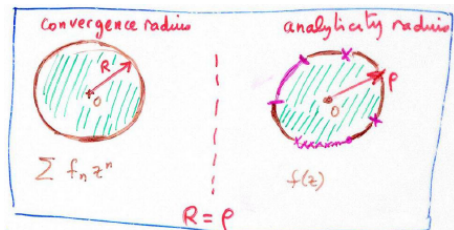 convergence radius
R
0
∑ fₙ zⁿ
analyticity radius
ρ
0
f(z)
R = ρ